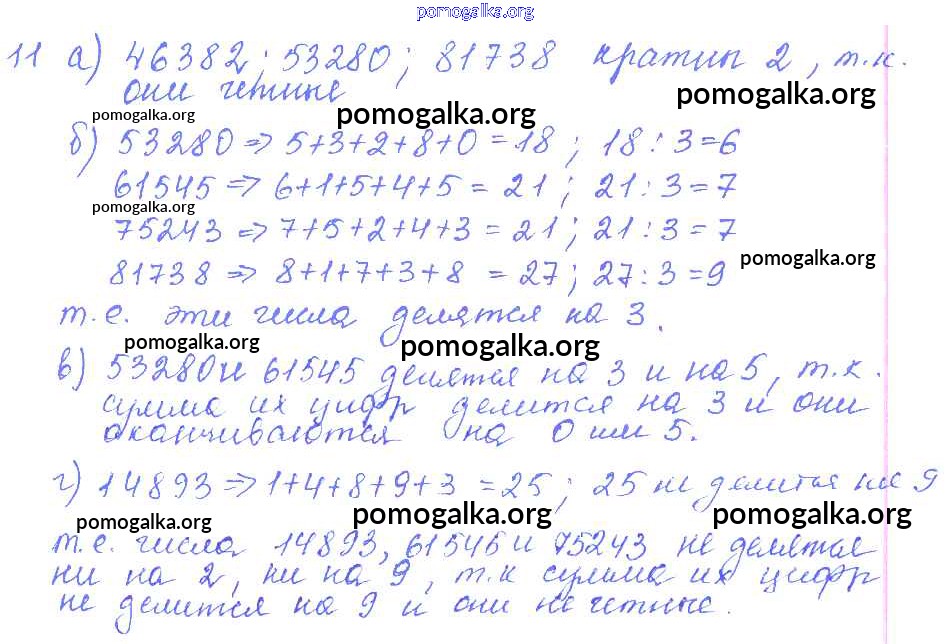 pomogalka.org
11 а) 46382; 53280; 81738 кратны 2, т.к.
они четные
pomogalka.org
pomogalka.org
pomogalka.org
б) 53280 => 5+3+2+8+0 = 18; 18 : 3 = 6
61545 => 6+1+5+4+5 = 21; 21 : 3 = 7
pomogalka.org
75243 => 7+5+2+4+3 = 21; 21 : 3 = 7
pomogalka.org
81738 => 8+1+7+3+8 = 27; 27 : 3 = 9
т.е. эти числа делятся на 3.
pomogalka.org
pomogalka.org
в) 53280 и 61545 делятся на 3 и на 5, т.к.
сумма их цифр делится на 3 и они
оканчиваются на 0 или 5.
г) 14893 => 1+4+8+9+3 = 25; 25 не делится на 9
pomogalka.org
pomogalka.org
pomogalka.org
т.е. числа 14893, 61545 и 75243 не делятся
ни на 2, ни на 9, т.к сумма их цифр
не делится на 9 и они не четные.